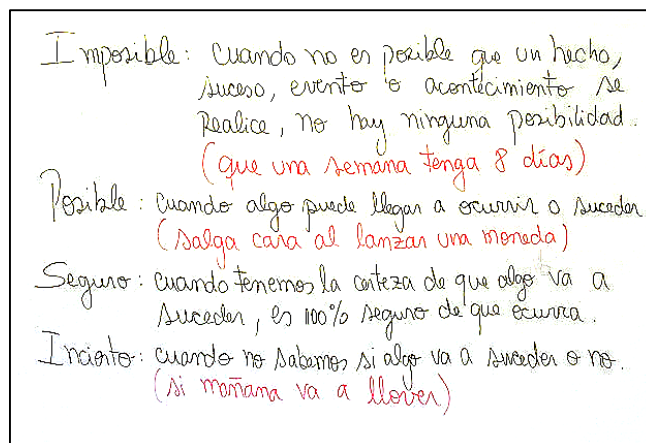 Imposible: cuando no es posible que un hecho,
suceso, evento o acontecimiento se
realice, no hay ninguna posibilidad.
(que una semana tenga 8 días)
Posible: cuando algo puede llegar a ocurrir o suceder
(salga cara al lanzar una moneda)
Seguro: cuando tenemos la certeza de que algo va a
suceder, es 100% seguro de que ocurra.
Incierto: cuando no sabemos si algo va a suceder o no.
(si mañana va a llover)